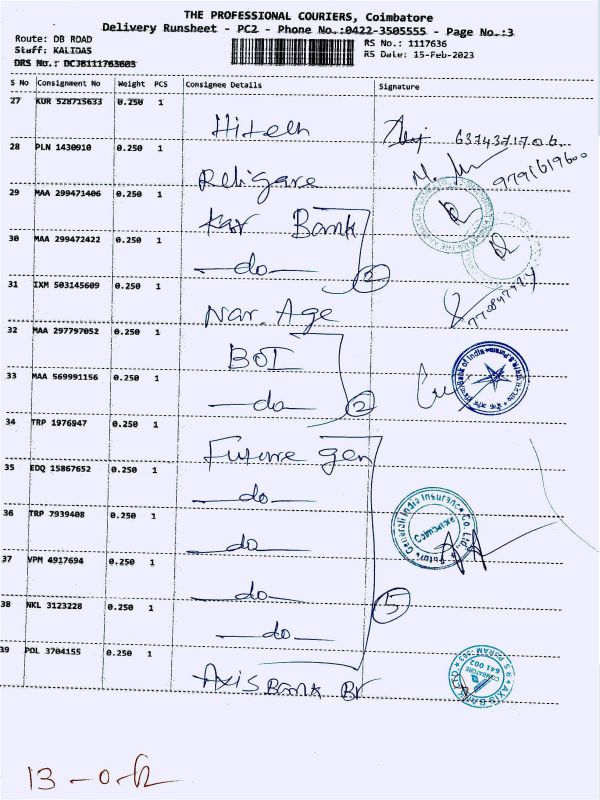 THE PROFESSIONAL COURIERS, Coimbatore
Delivery Runsheet - PC2 - Phone No.:0422-3505555 - Page No.:3
Route: DB ROAD
Staff: KALIDAS
DRS No.: DCJB111763603
RS No.: 1117636
RS Date: 15-Feb-2023
S No Consignment No Weight PCS Consignee Details Signature
27 KUR 528715633 0.250 1
Hitech 6374371706
28 PLN 1430910 0.250 1
Religare 9791619600
29 MAA 299471406 0.250 1
Kar Bank
30 MAA 299472422 0.250 1
do 2
31 IXM 503145609 0.250 1
Nar. Age
32 MAA 297797052 0.250 1
BOI
33 MAA 569991156 0.250 1
do 2
34 TRP 1976947 0.250 1
Future gen
35 EDQ 15867652 0.250 1
do
36 TRP 7939408 0.250 1
do
37 VPM 4917694 0.250 1
do 5
38 NKL 3123228 0.250 1
do
39 POL 3704155 0.250 1
Axis Bank Br
Bank of India
Future Generali India Insurance Co. Ltd.
AXIS
R S PURAM
COIMBATORE
641 002
13 - 0